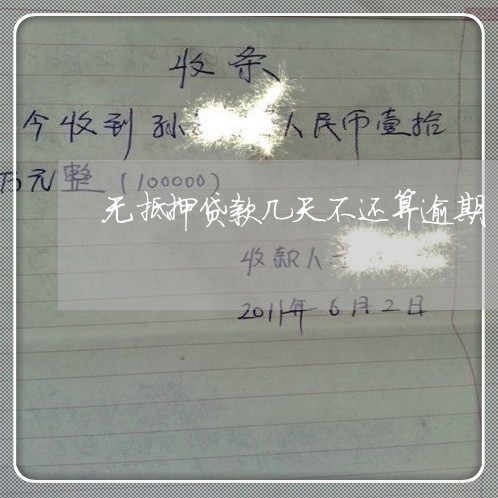 收条
今收到孙 人民币壹拾
万元整（100000）
无抵押贷款几天不还算逾期
收款人
2011年6月2日